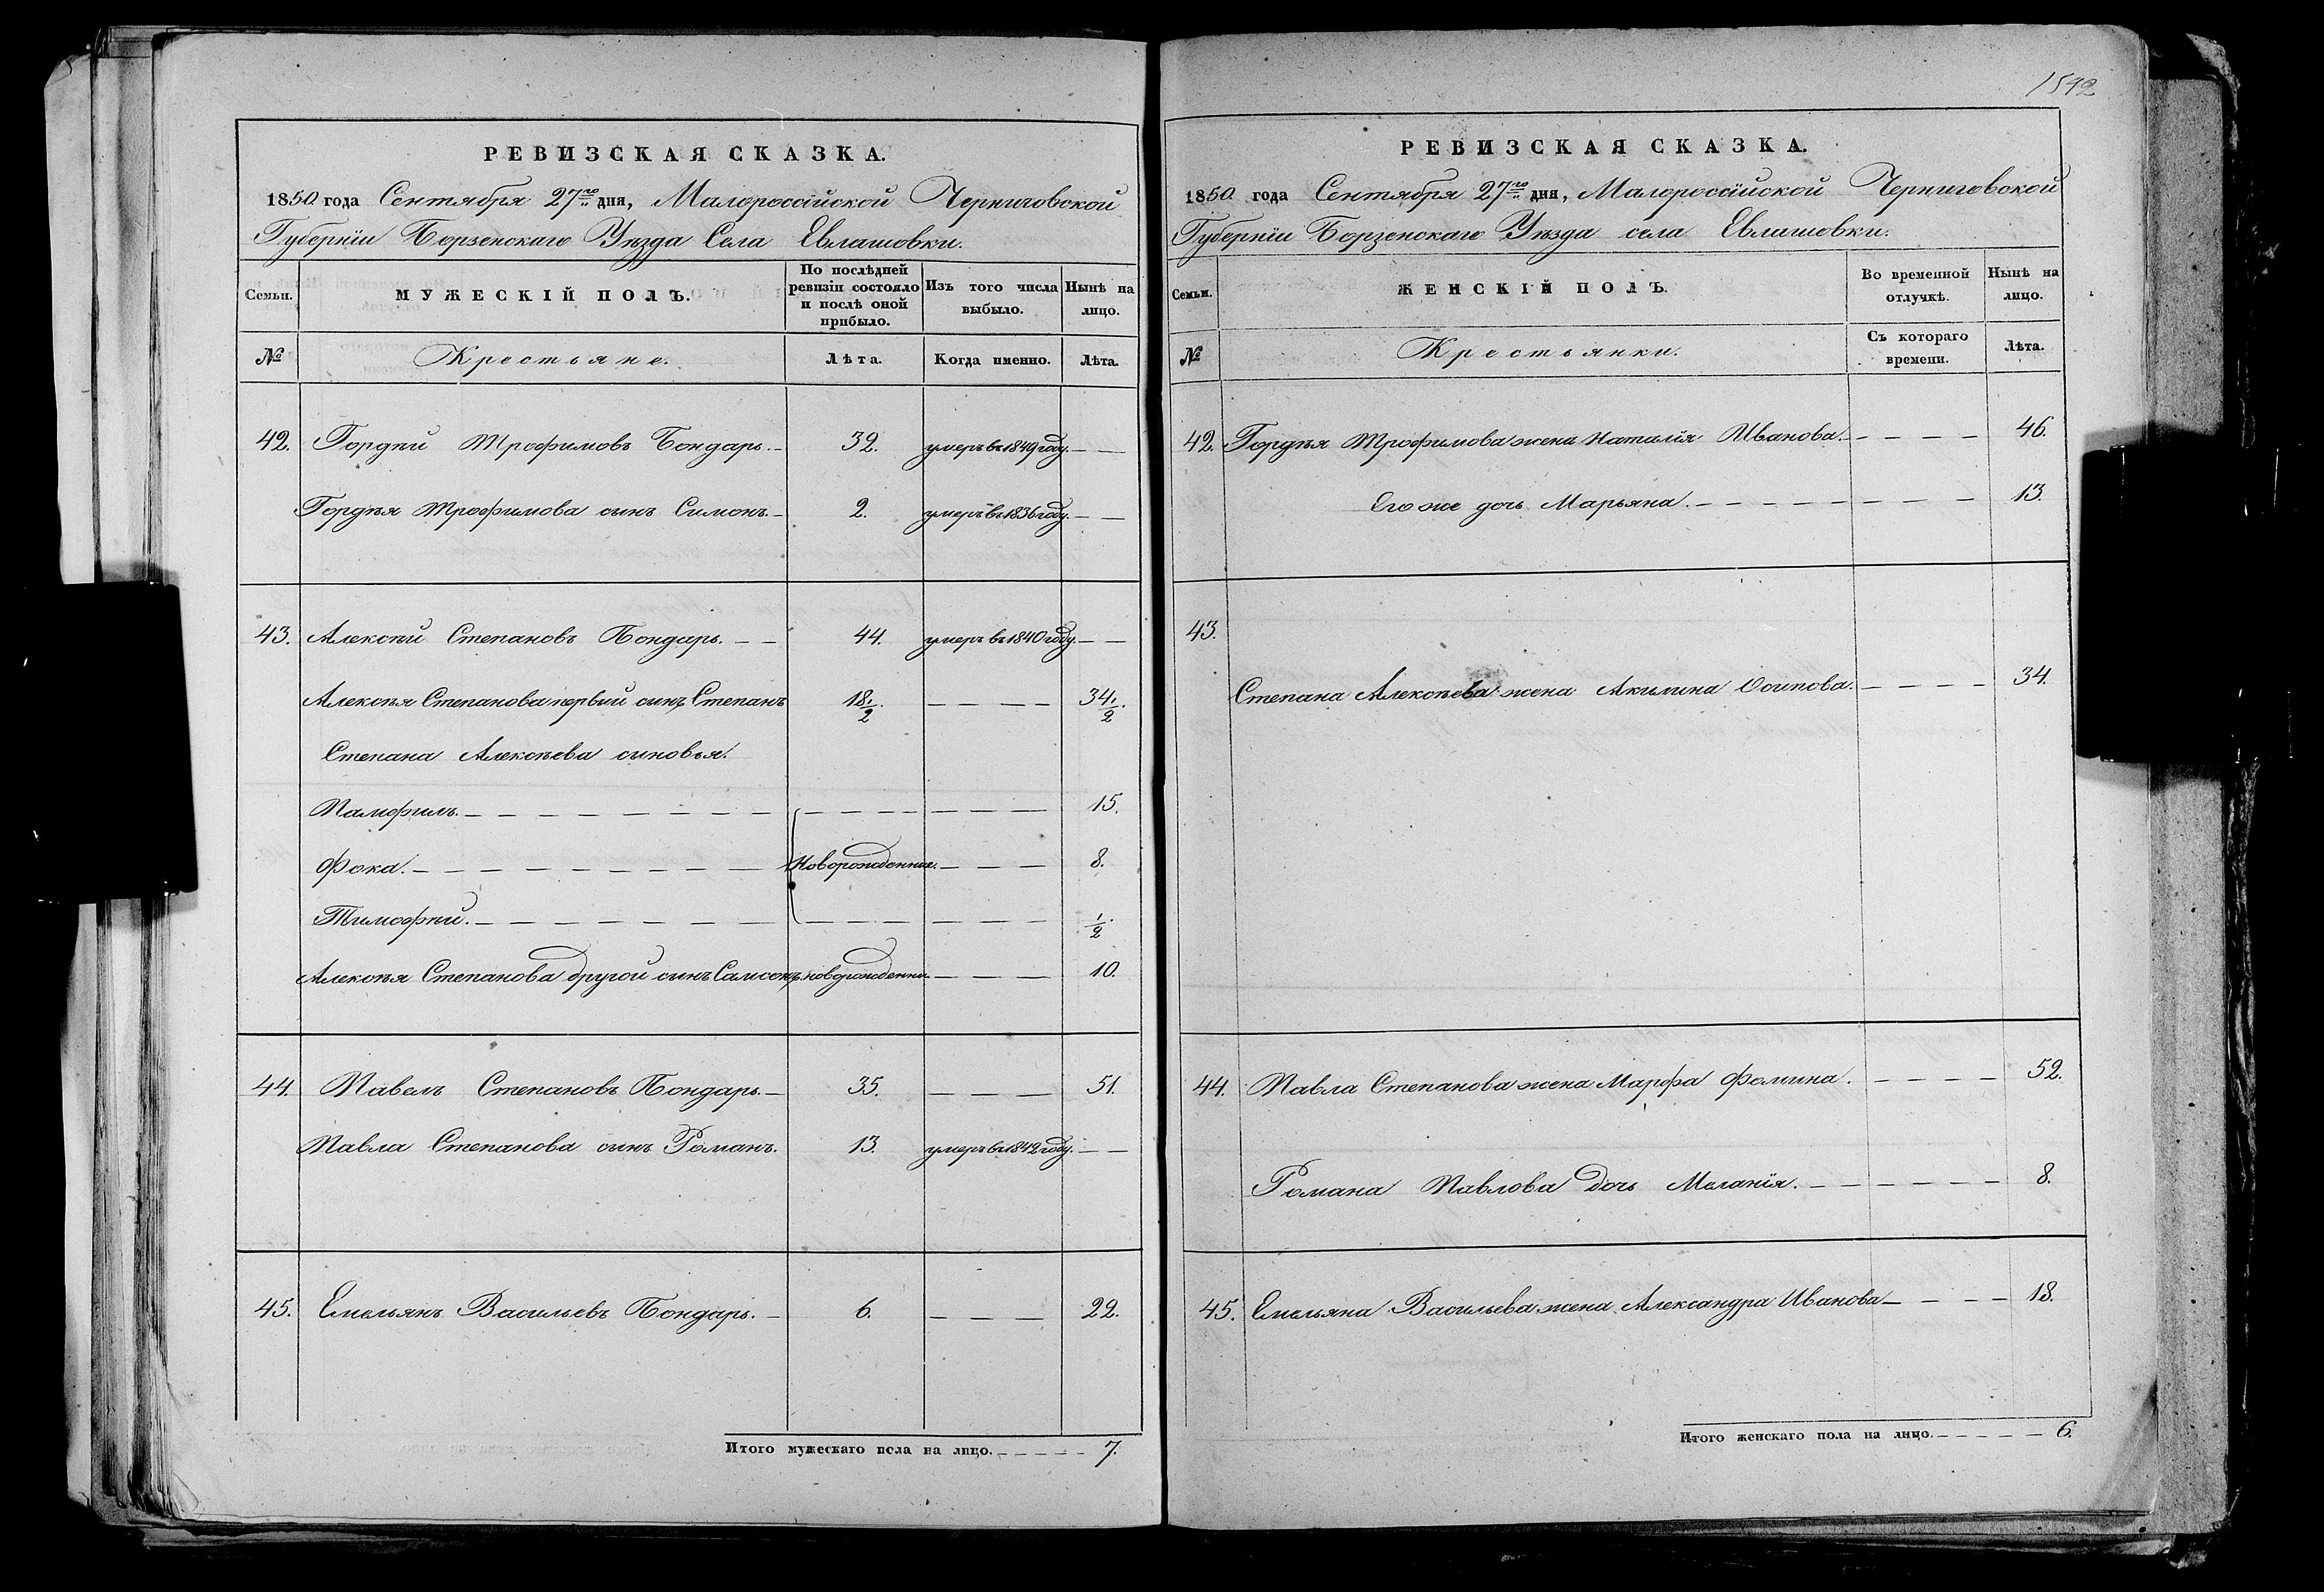 РЕВИЗСКАЯ СКАЗКА.
1850 года Сентября 27го дня, Малороссійской Черниговской
Губерніи Борзенскаго Уѣзда Села Евлашовки.
Семьи. МУЖЕСКІЙ ПОЛЪ. По послѣдней ревизіи состояло и послѣ оной прибыло. Изъ того числа выбыло. Нынѣ на лицо.
№ Крестьяне. Лѣта. Когда именно. Лѣта.
42. Гордѣй Трофимовъ Бондарь. – 32. умеръ въ 1849 году. – –
Гордѣя Трофимова сынъ Симонъ. – 2. умеръ въ 1836 году. – –
43. Алексѣй Степановъ Бондарь. – – 44. умеръ въ 1840 году. – –
Алексѣя Степанова первый сынъ Степанъ 18 1/2. – – – – 34 1/2.
Степана Алексѣева сыновья.
Памфилъ. – – – – – – – – – – – – 15.
Фока. – – – – – – Новорожденные. – – – 8.
Тимофѣй. – – – – – – – – – – – – 1/2.
Алексѣя Степанова другой сынъ Самсонъ. новорожденный. – – – 10.
44. Павелъ Степановъ Бондарь. – 35. – – – – 51.
Павла Степанова сынъ Романъ. 13. умеръ въ 1842 году. – –
45. Емельянъ Васильевъ Бондарь. – 6. – – – – 22.
Итого мужескаго пола на лицо. – – – – – 7.
1542
РЕВИЗСКАЯ СКАЗКА.
1850 года Сентября 27го дня, Малороссійской Черниговской
Губерніи Борзенскаго Уѣзда села Евлашовки.
Семьи. ЖЕНСКІЙ ПОЛЪ. Во временной отлучкѣ. Нынѣ на лицо.
№ Крестьянки. Съ котораго времени. Лѣта.
42. Гордѣя Трофимова жена Наталія Иванова. – – – – 46.
Его же дочь Марьяна. – – – – – – – – 13.
43.
Степана Алексѣева жена Акилина Осипова. – – – – 34.
44. Павла Степанова жена Марфа Фомина. – – – – 52.
Романа Павлова дочь Меланія. – – – – – – 8.
45. Емельяна Васильева жена Александра Иванова – – – – 18.
Итого женскаго пола на лицо. – – – – – 6.